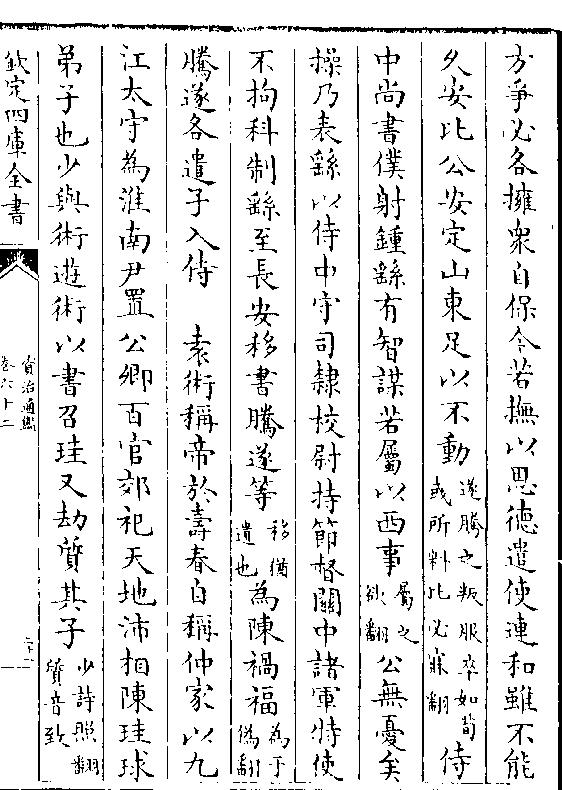 方爭必各擁衆自保今若撫以恩德遣使連和雖不能
久安比公安定山東足以不動遂騰之叛服卒如荀彧所料比必寐翻侍
中尚書僕射鍾繇有智謀若屬以西事屬之欲翻公無憂矣
操乃表繇以侍中守司隸校尉持節督關中諸軍特使
不拘科制繇至長安移書騰遂等移猶遺也為陳禍福為于偽翻
騰遂各遣子入侍 袁術稱帝於壽春自稱仲家以九
江太守為淮南尹置公卿百官郊祀天地沛相陳珪球
弟子也少與術遊術以書召珪又劫質其子少詩照翻質音致
欽定四庫全書
資治通鑑
卷六十二